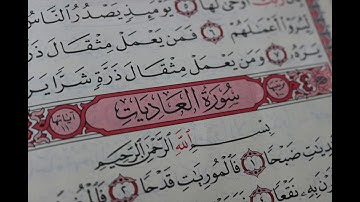 أَوْحَىٰ لَهَا ٥ يَوْمَئِذٍ يَصْدُرُ النَّاسُ
لِّيُرَوْا أَعْمَالَهُمْ ٦ فَمَن يَعْمَلْ مِثْقَالَ ذَرَّةٍ
يَرَهُ ٧ وَمَن يَعْمَلْ مِثْقَالَ ذَرَّةٍ شَرًّا يَرَ
آياتها ١١ سُورَةُ الْعَادِيَاتِ
بِسْمِ اللَّهِ الرَّحْمَٰنِ الرَّحِيمِ
ضَبْحًا ١ فَالْمُورِيَاتِ قَدْحًا ٢
بِهِ نَقْعًا ٤